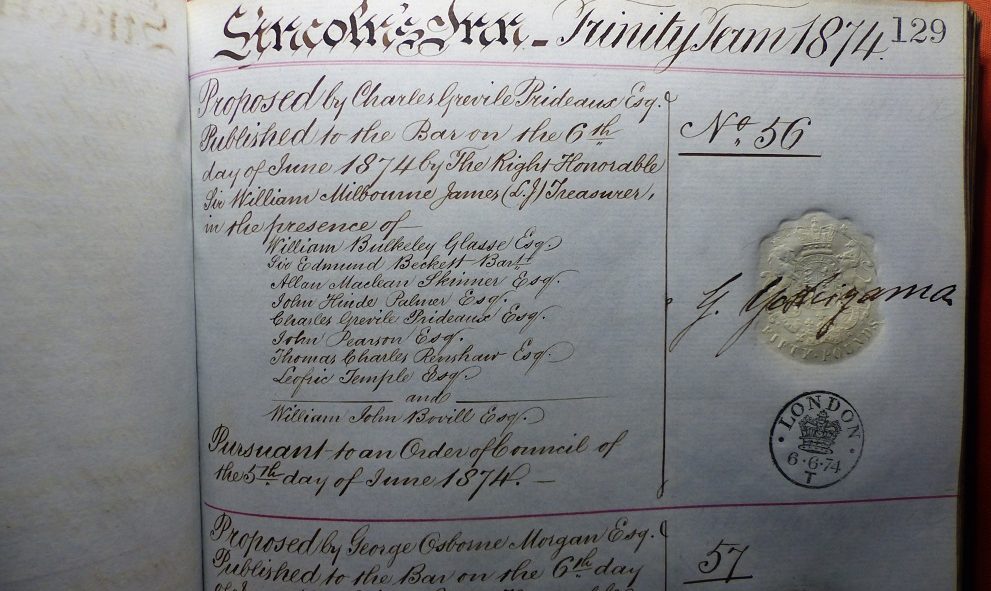 Lincoln's Inn - Trinity Term 1874. 129
Proposed by Charles Grevile Prideaux Esq.
Published to the Bar on the 6th
day of June 1874 by The Right Honorable
Sir William Milbourne James (L.J) Treasurer,
in the presence of
William Bulkeley Glasse Esq.
Sir Edmund Beckett Bart.
Allan Maclean Skinner Esq.
John Hinde Palmer Esq.
Charles Grevile Prideaux Esq.
John Pearson Esq.
Thomas Charles Renshaw Esq.
Leofric Temple Esq.
and
William John Bovill Esq.
Pursuant to an Order of Council of
the 5th day of June 1874. -
No. 56
G.
FIFTY POUNDS
LONDON
6·6·74
T
Proposed by George Osborne Morgan Esq.
Published to the Bar on the 6th day
57